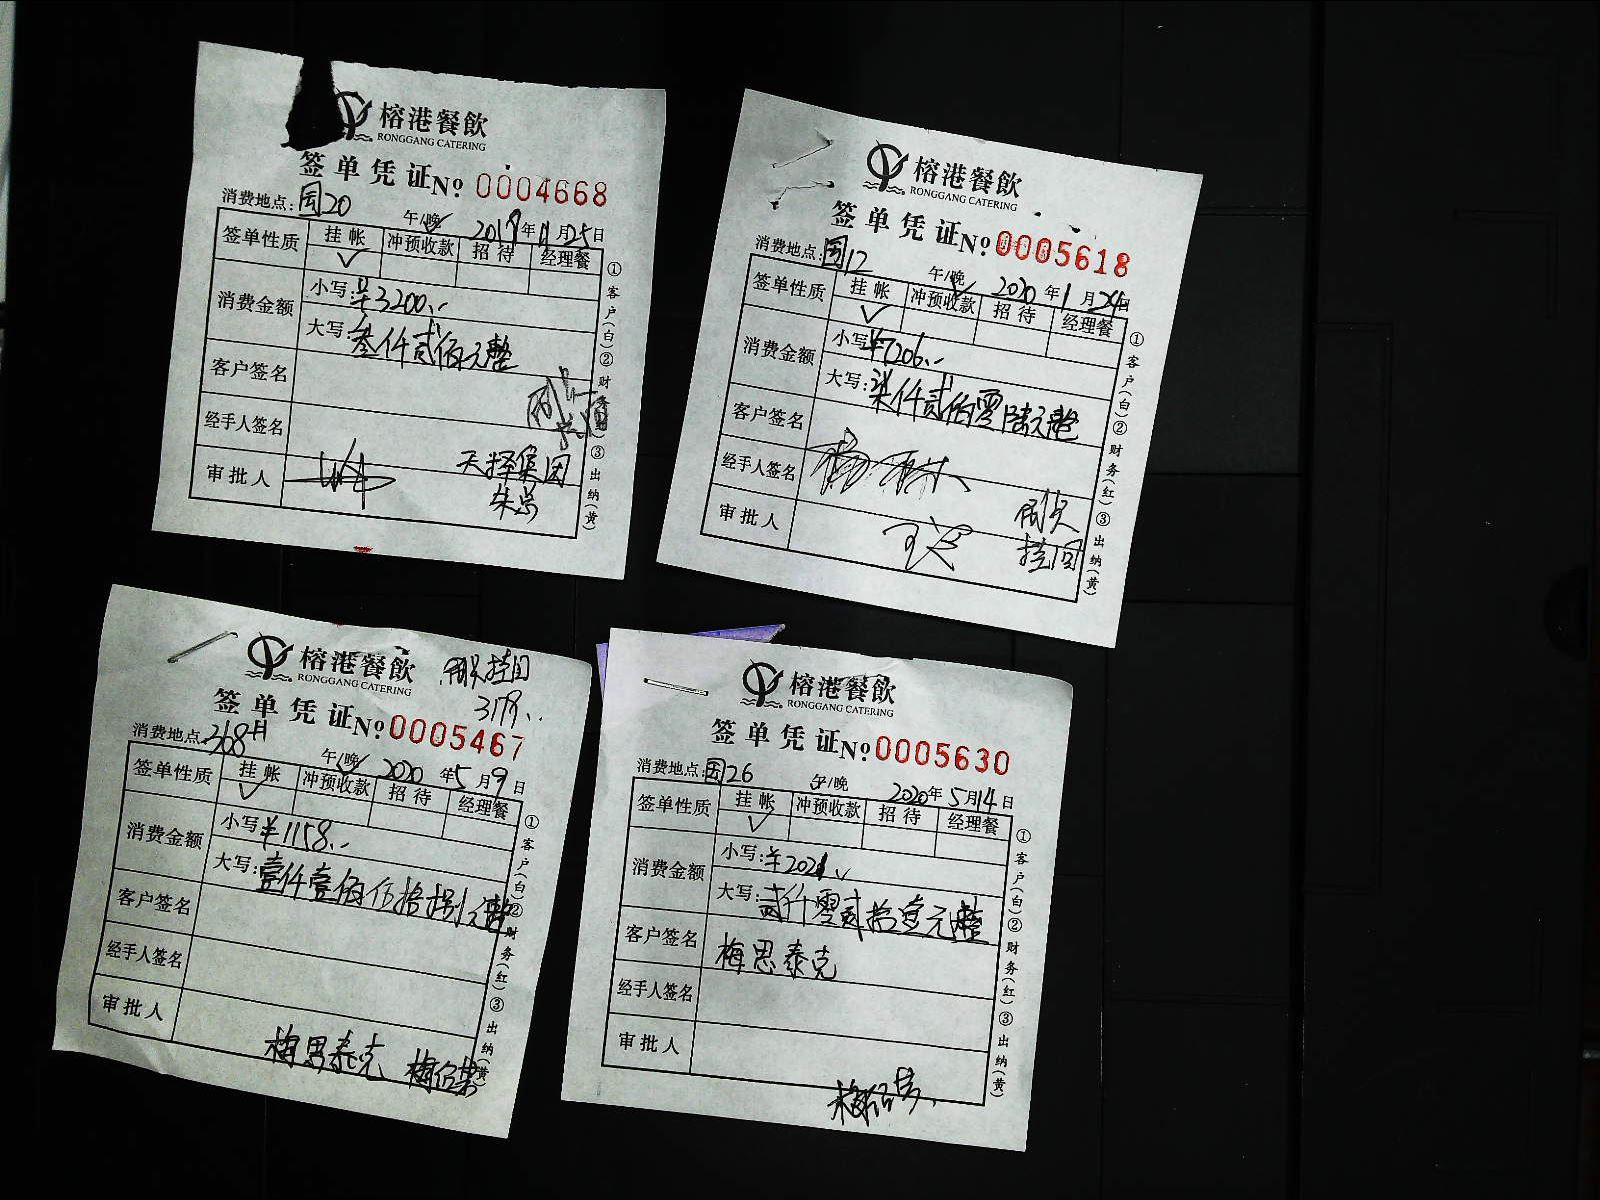 榕港餐飲
RONGGANG CATERING
签单凭证 No. 0004668
消费地点: 园20 午/晚 2019年11月25日
签单性质 挂帐 冲预收款 招待 经理餐
✓
消费金额 小写: ¥3200.-
大写: 叁仟贰佰元整
客户签名
经手人签名
审批人 天择集团
朱总
①客户(白)②财务(红)③出纳(黄)
榕港餐飲
RONGGANG CATERING
签单凭证 No. 0005618
消费地点: 园12 午/晚 2020年1月24日
签单性质 挂帐 冲预收款 招待 经理餐
✓
消费金额 小写: ¥7206.-
大写: 柒仟贰佰零陆元整
客户签名
经手人签名
审批人
挂园
①客户(白)②财务(红)③出纳(黄)
榕港餐飲
RONGGANG CATERING
签单凭证 No. 0005467
消费地点: 368# 午/晚 2020年5月9日
签单性质 挂帐 冲预收款 招待 经理餐
✓
消费金额 小写: ¥1158.-
大写: 壹仟壹佰伍拾捌元整
客户签名
经手人签名
审批人
梅思泰克
①客户(白)②财务(红)③出纳(黄)
榕港餐飲
RONGGANG CATERING
签单凭证 No. 0005630
消费地点: 园26 午/晚 2020年5月14日
签单性质 挂帐 冲预收款 招待 经理餐
✓
消费金额 小写: ¥2021.-
大写: 贰仟零贰拾壹元整
客户签名 梅思泰克
经手人签名
审批人
①客户(白)②财务(红)③出纳(黄)